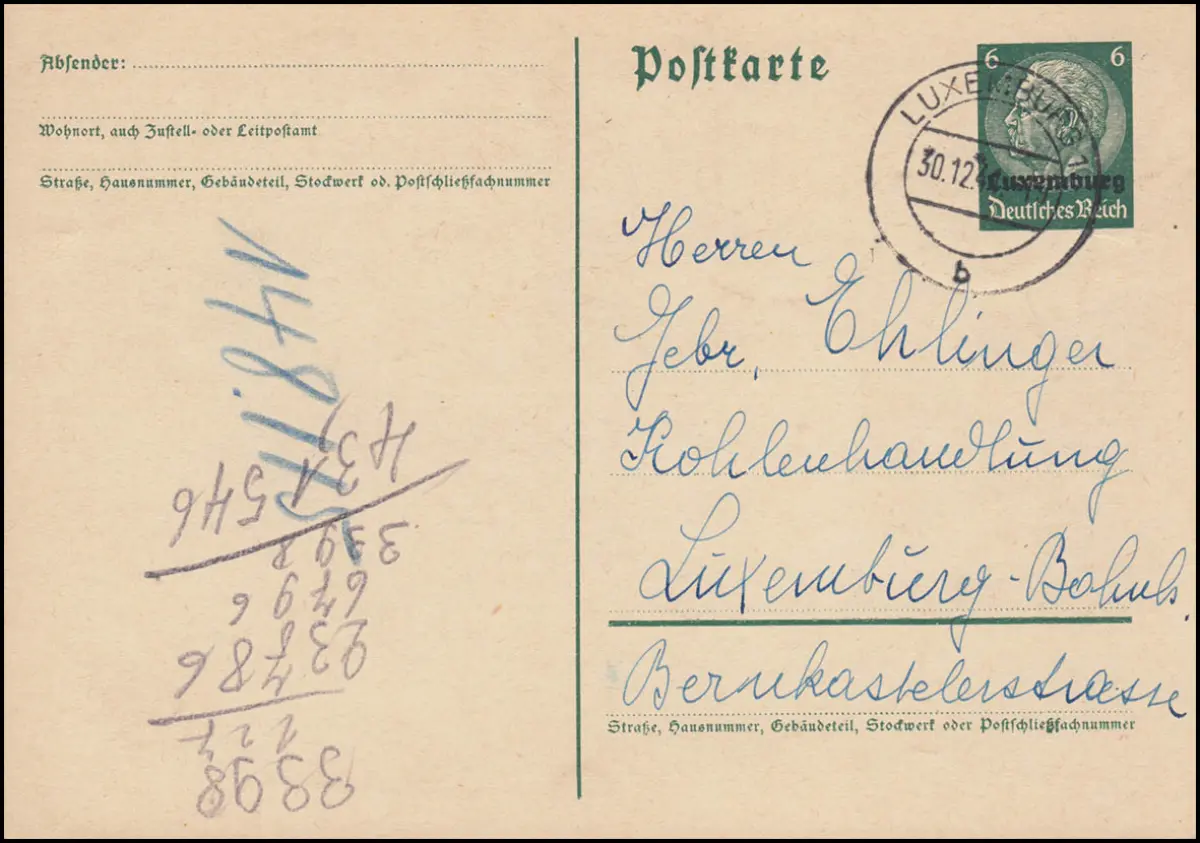 Absender:
Wohnort, auch Zustell- oder Leitpostamt
Straße, Hausnummer, Gebäudeteil, Stockwerk od. Postschließfachnummer
Postkarte
6 6
Luxemburg
Deutsches Reich
LUXEMBURG 1
30.12.
b
Herren
Gebr. Ehlinger
Kohlenhandlung
Luxemburg-Bahnh.
Bernkastelerstrasse
Straße, Hausnummer, Gebäudeteil, Stockwerk oder Postschließfachnummer
3398
127
23786
6796
3398
431546